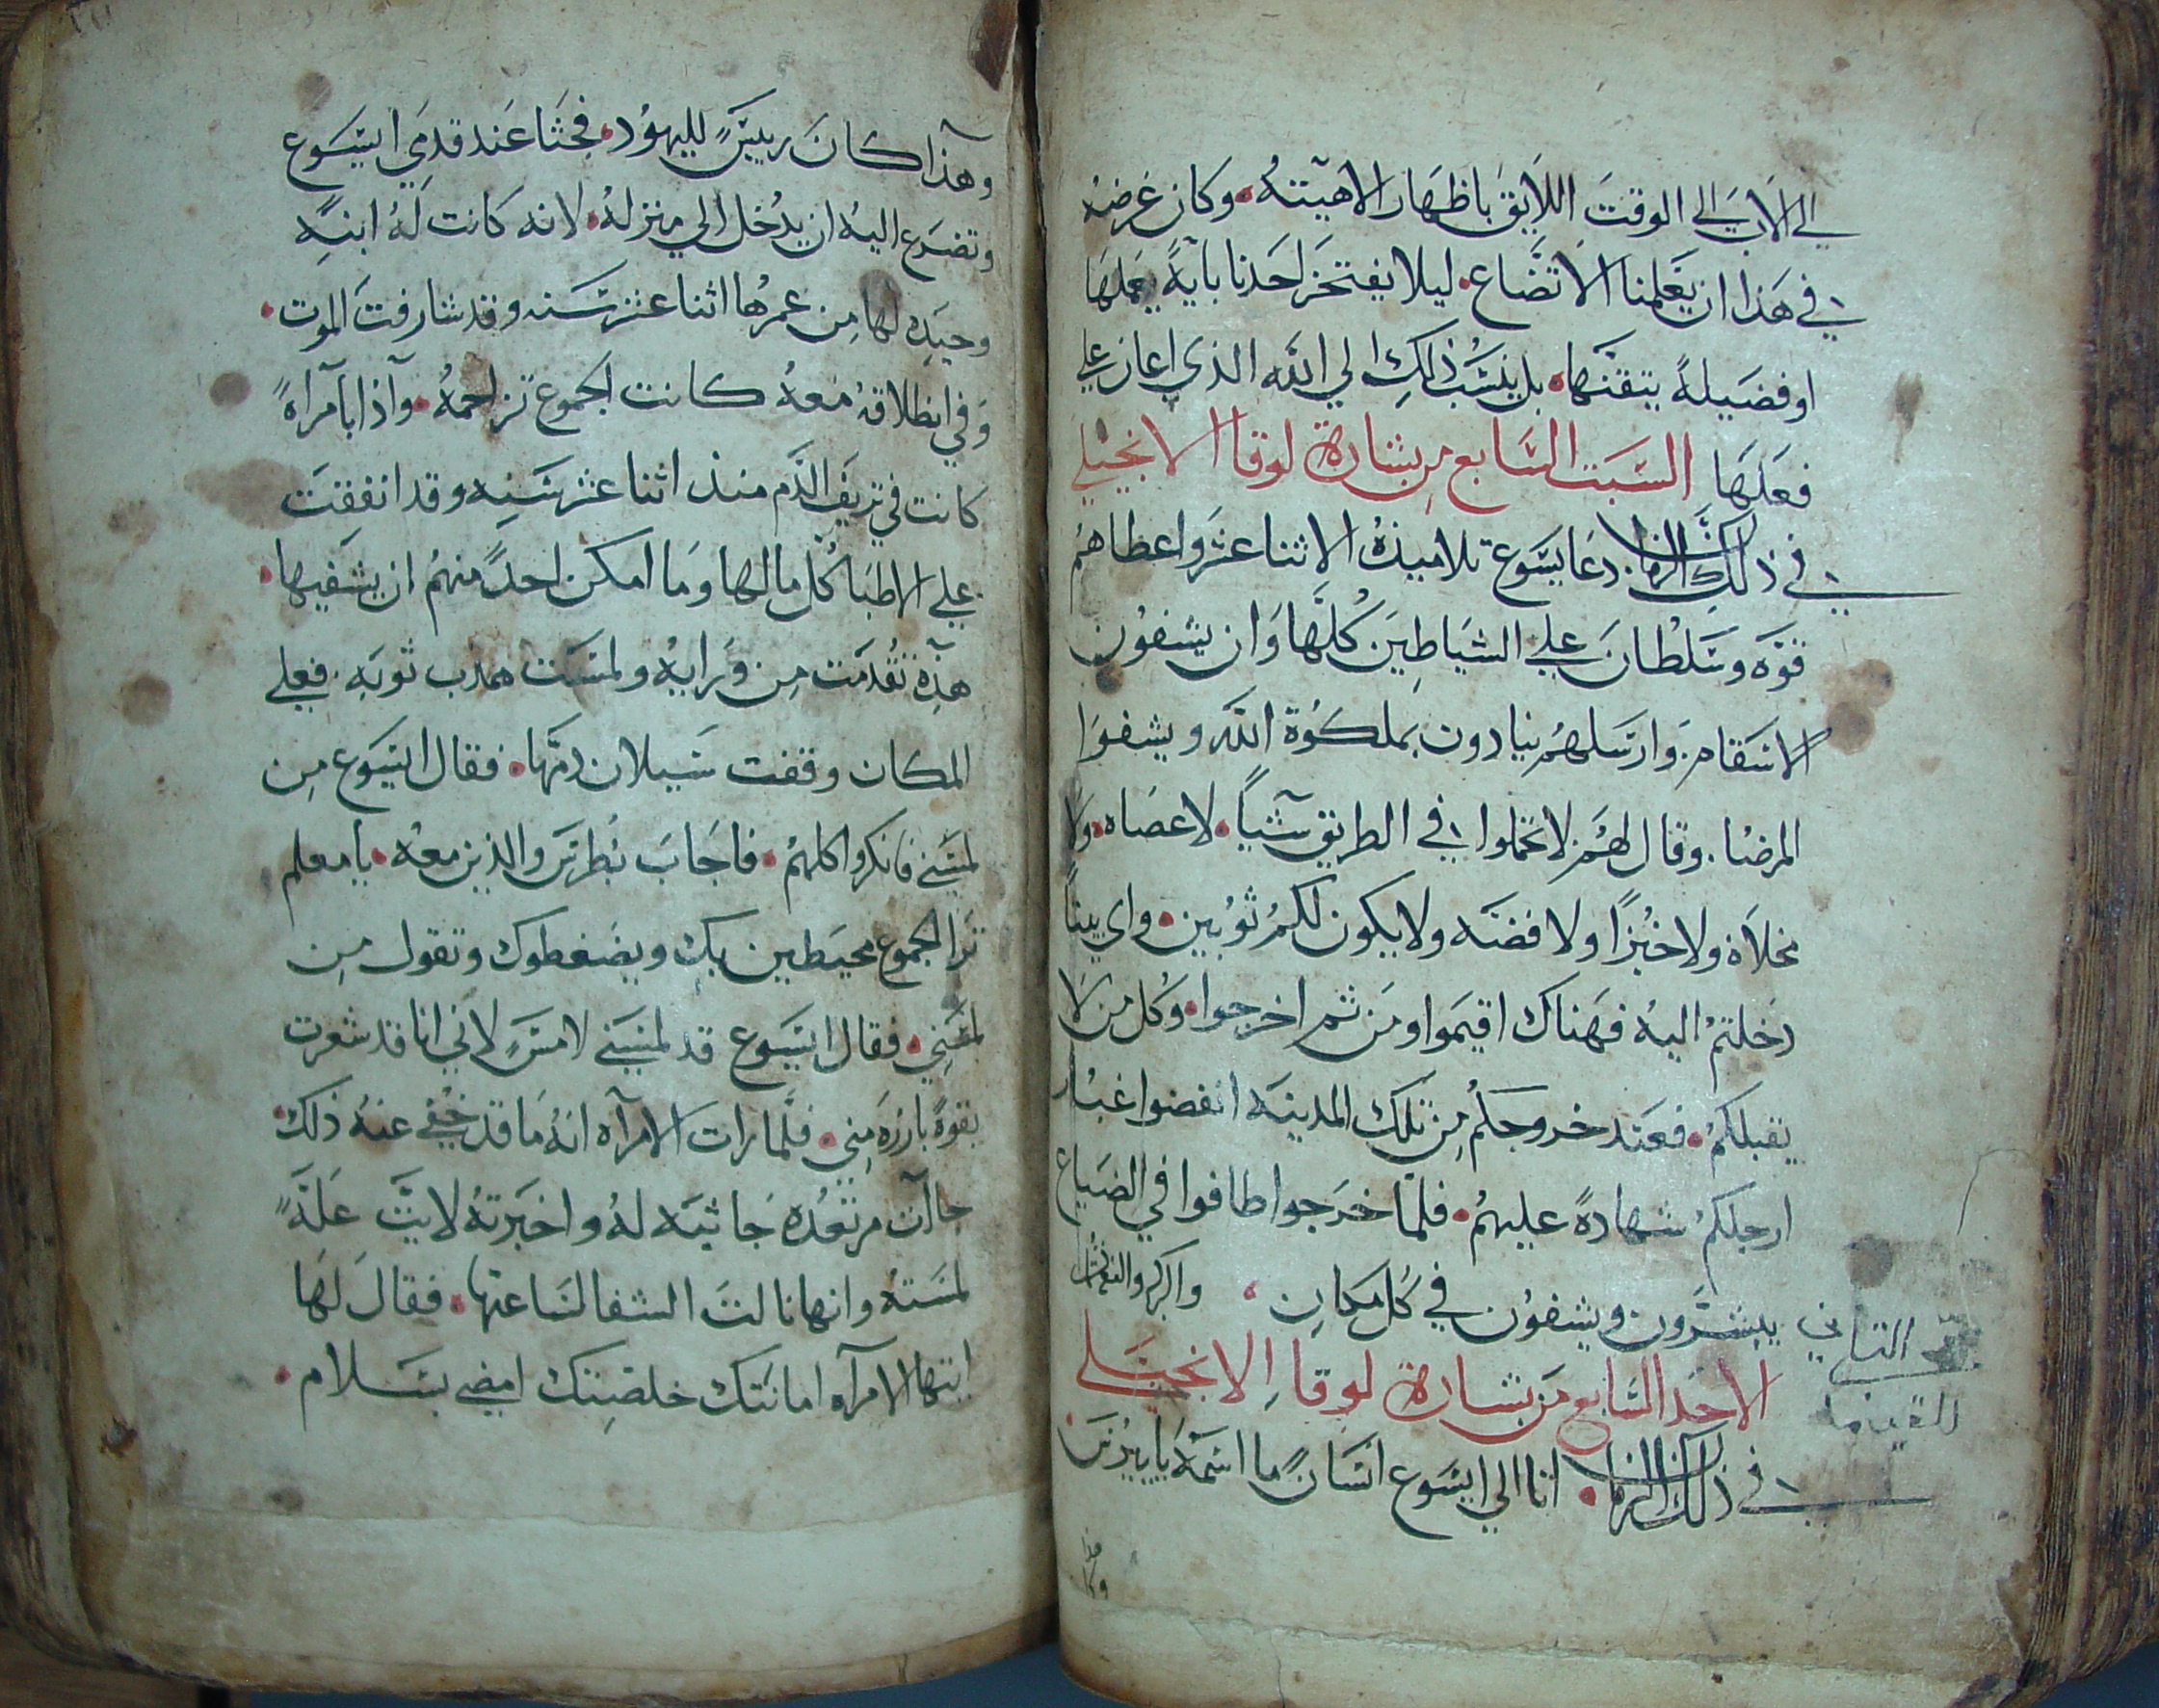 الي الاب الي الوقت اللايق باظهار الاهيته • وكان غرضه
في هذا ان يعلمنا الاتضاع • ليلا يفتخر احدنا باية يعملها
او فضيلة يتقنها • بل ينسب ذلك الي الله الذي اعان علي
فعلها السبت السابع من بشارة لوقا الانجيلي
في ذلك الزمان • دعا يسوع تلاميذه الاثنا عشر واعطاهم
قوه وسلطان علي الشياطين كلها وان يشفون
الاسقام • وارسلهم ينادون بملكوة الله ويشفوا
المرضا • وقال لهم لا تحملوا في الطريق شيا • لا عصاه • ولا
مخلاة ولا خبزا ولا فضه ولا يكون لكم ثوبين • واي بيتا
دخلتم اليه فهناك اقيموا ومن ثم اخرجوا • وكل من لا
يقبلكم • فعند خروجكم من تلك المدينه انفضوا غبار
ارجلكم شهادة عليهم • فلما خرجوا طافوا في الضياع
يبشرون ويشفون في كل مكان •
الاحد السابع من بشارة لوقا الانجيلي
في ذلك الزمان • اتا الي ايسوع انسان ما اسمه يايرس •
وهذا كان رييس لليهود • فجثا عند قدمي ايسوع
وتضرع اليه ان يدخل الي منزله • لانه كانت له ابنه
وحيده لها من عمرها اثنا عشر سنه وقد شارفت الموت •
وفي انطلاقه معه كانت الجموع تزاحمه • واذا بامراة
كانت في نزيف الدم منذ اثنا عشر سنه وقد انفقت
علي الاطبا كل مالها وما امكن احد منهم ان يشفيها •
هذه تقدمت من ورايه ولمست هدب ثوبه • فعلي
المكان وقفت سيلان دمها • فقال ايسوع من
لمسني فانكروا كلهم • فاجاب بطرس والذين معه • يا معلم
ترا الجموع محيطين بك ويضغطوك وتقول من
لمسني • فقال ايسوع قد لمسني لامس لاني انا قد شعرت
بقوة بارزه مني • فلما رات الامراه انه ما قد خفي عنه ذلك
جاات مرتعده جاثيه له واخبرته لايت علة
لمسته وانها نالت الشفا لساعتها • فقال لها
ايتها الامراه امانتك خلصتك امضي بسلام •